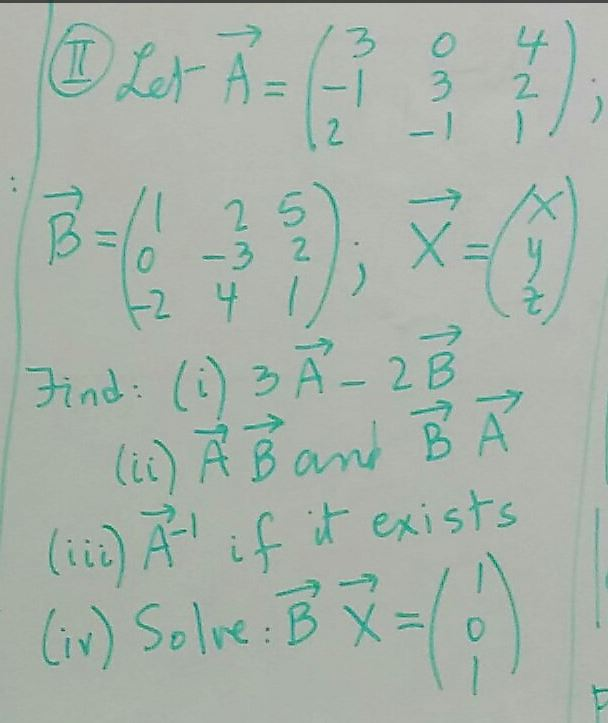 II Let A⃗ = ( 3 0 4
-1 3 2
2 -1 1 ) ;
B⃗ = ( 1 2 5
0 -3 2
-2 4 1 ) ; X⃗ = ( x
y
z )
Find: (i) 3A⃗ - 2B⃗
(ii) A⃗ B⃗ and B⃗ A⃗
(iii) A⃗⁻¹ if it exists
(iv) Solve: B⃗ X⃗ = ( 1
0
1 )